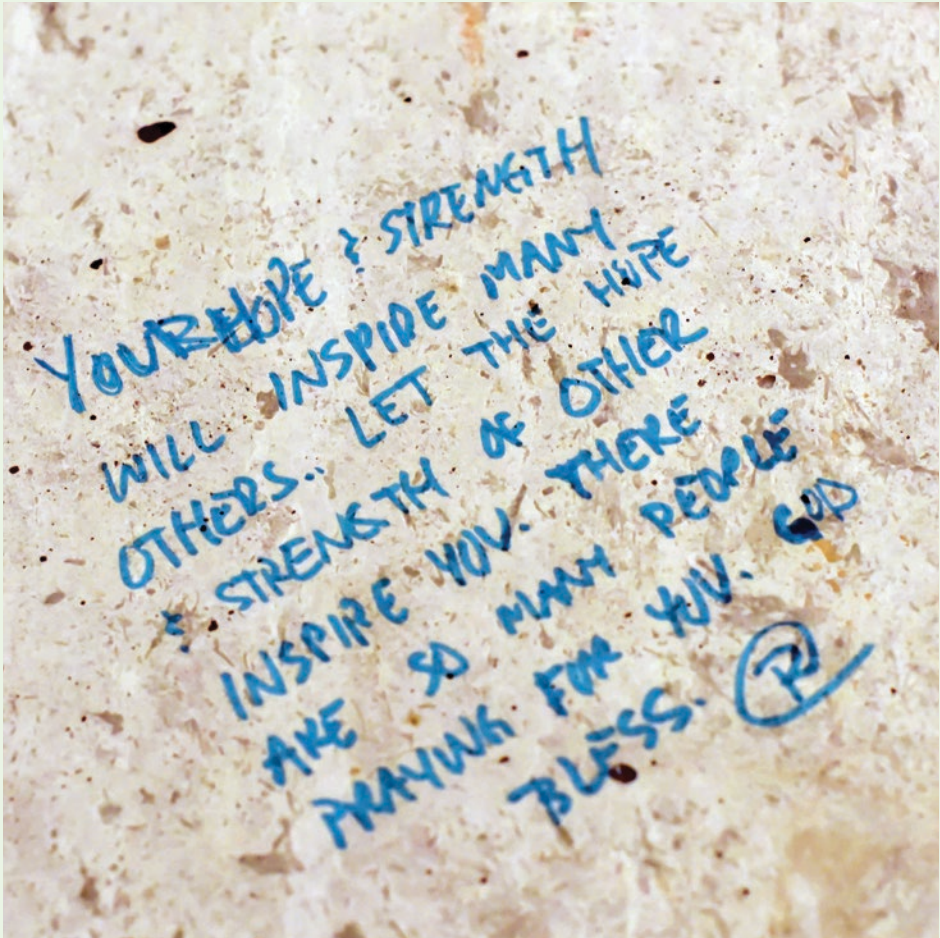 YOUR HOPE & STRENGTH
WILL INSPIRE MANY
OTHERS.. LET THE HOPE
& STRENGTH OF OTHER
INSPIRE YOU. THERE
ARE SO MANY PEOPLE
PRAYING FOR YOU. GOD
BLESS. R